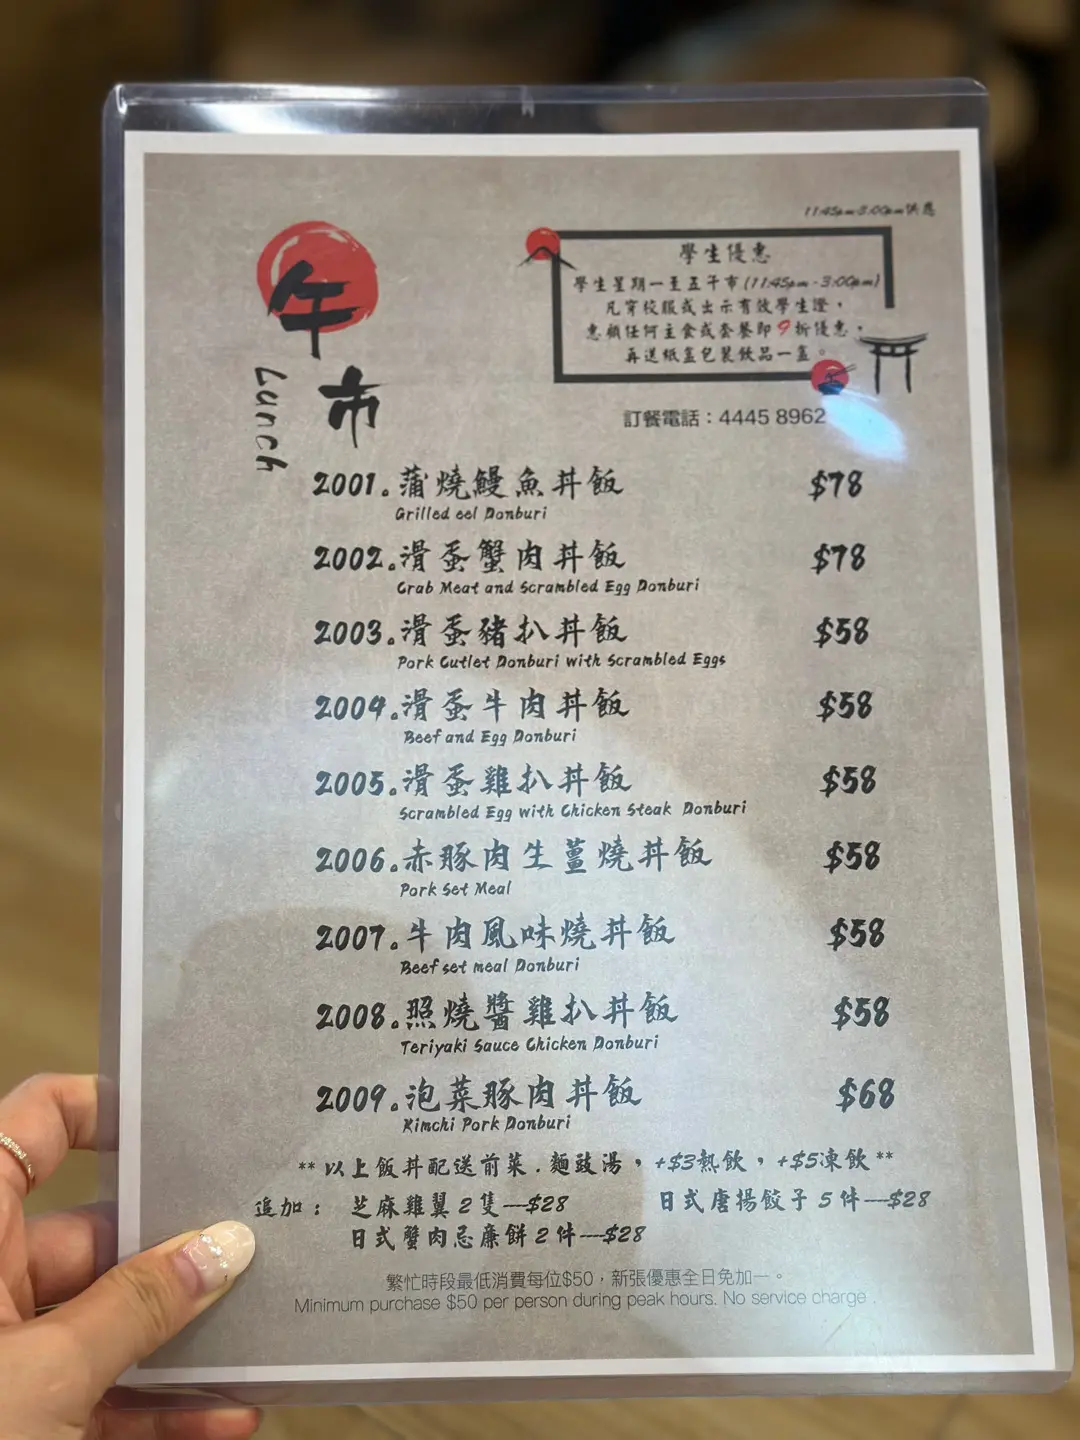 11:45am-3:00pm供應
午市
Lunch
學生優惠
學生星期一至五午市(11:45am - 3:00pm)
凡穿校服或出示有效學生證，
惠顧任何主食或套餐即9折優惠，
再送紙盒包裝飲品一盒。
訂餐電話：4445 8962
2001。蒲燒鰻魚丼飯 $78
Grilled eel Donburi
2002。滑蛋蟹肉丼飯 $78
Crab Meat and Scrambled Egg Donburi
2003。滑蛋豬扒丼飯 $58
Pork Cutlet Donburi with Scrambled Eggs
2004。滑蛋牛肉丼飯 $58
Beef and Egg Donburi
2005。滑蛋雞扒丼飯 $58
Scrambled Egg with Chicken Steak Donburi
2006。赤豚肉生薑燒丼飯 $58
Pork Set Meal
2007。牛肉風味燒丼飯 $58
Beef set meal Donburi
2008。照燒醬雞扒丼飯 $58
Teriyaki Sauce Chicken Donburi
2009。泡菜豚肉丼飯 $68
Kimchi Pork Donburi
**以上飯丼配送前菜.麵豉湯，+$3熱飲，+$5凍飲**
追加： 芝麻雞翼2隻—$28 日式唐揚餃子5件—$28
日式蟹肉忌廉餅2件—$28
繁忙時段最低消費每位$50，新張優惠全日免加一。
Minimum purchase $50 per person during peak hours. No service charge .